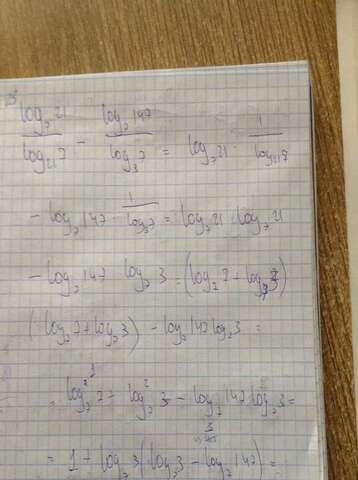 log₇21 / log₂₁7 - log₇147 / log₃7 = log₇21 · 1 / log₂₁7
- log₇147 · 1 / log₃7 = log₇21 · log₇21
- log₇147 log₇3 = (log₇7 + log₇3)
(log₇7 + log₇3) - log₇147 log₇3 =
= log₇²7 + log₇²3 - log₇147 log₇3 =
= 1 + log₇3 (log₇3 - log₇147) =